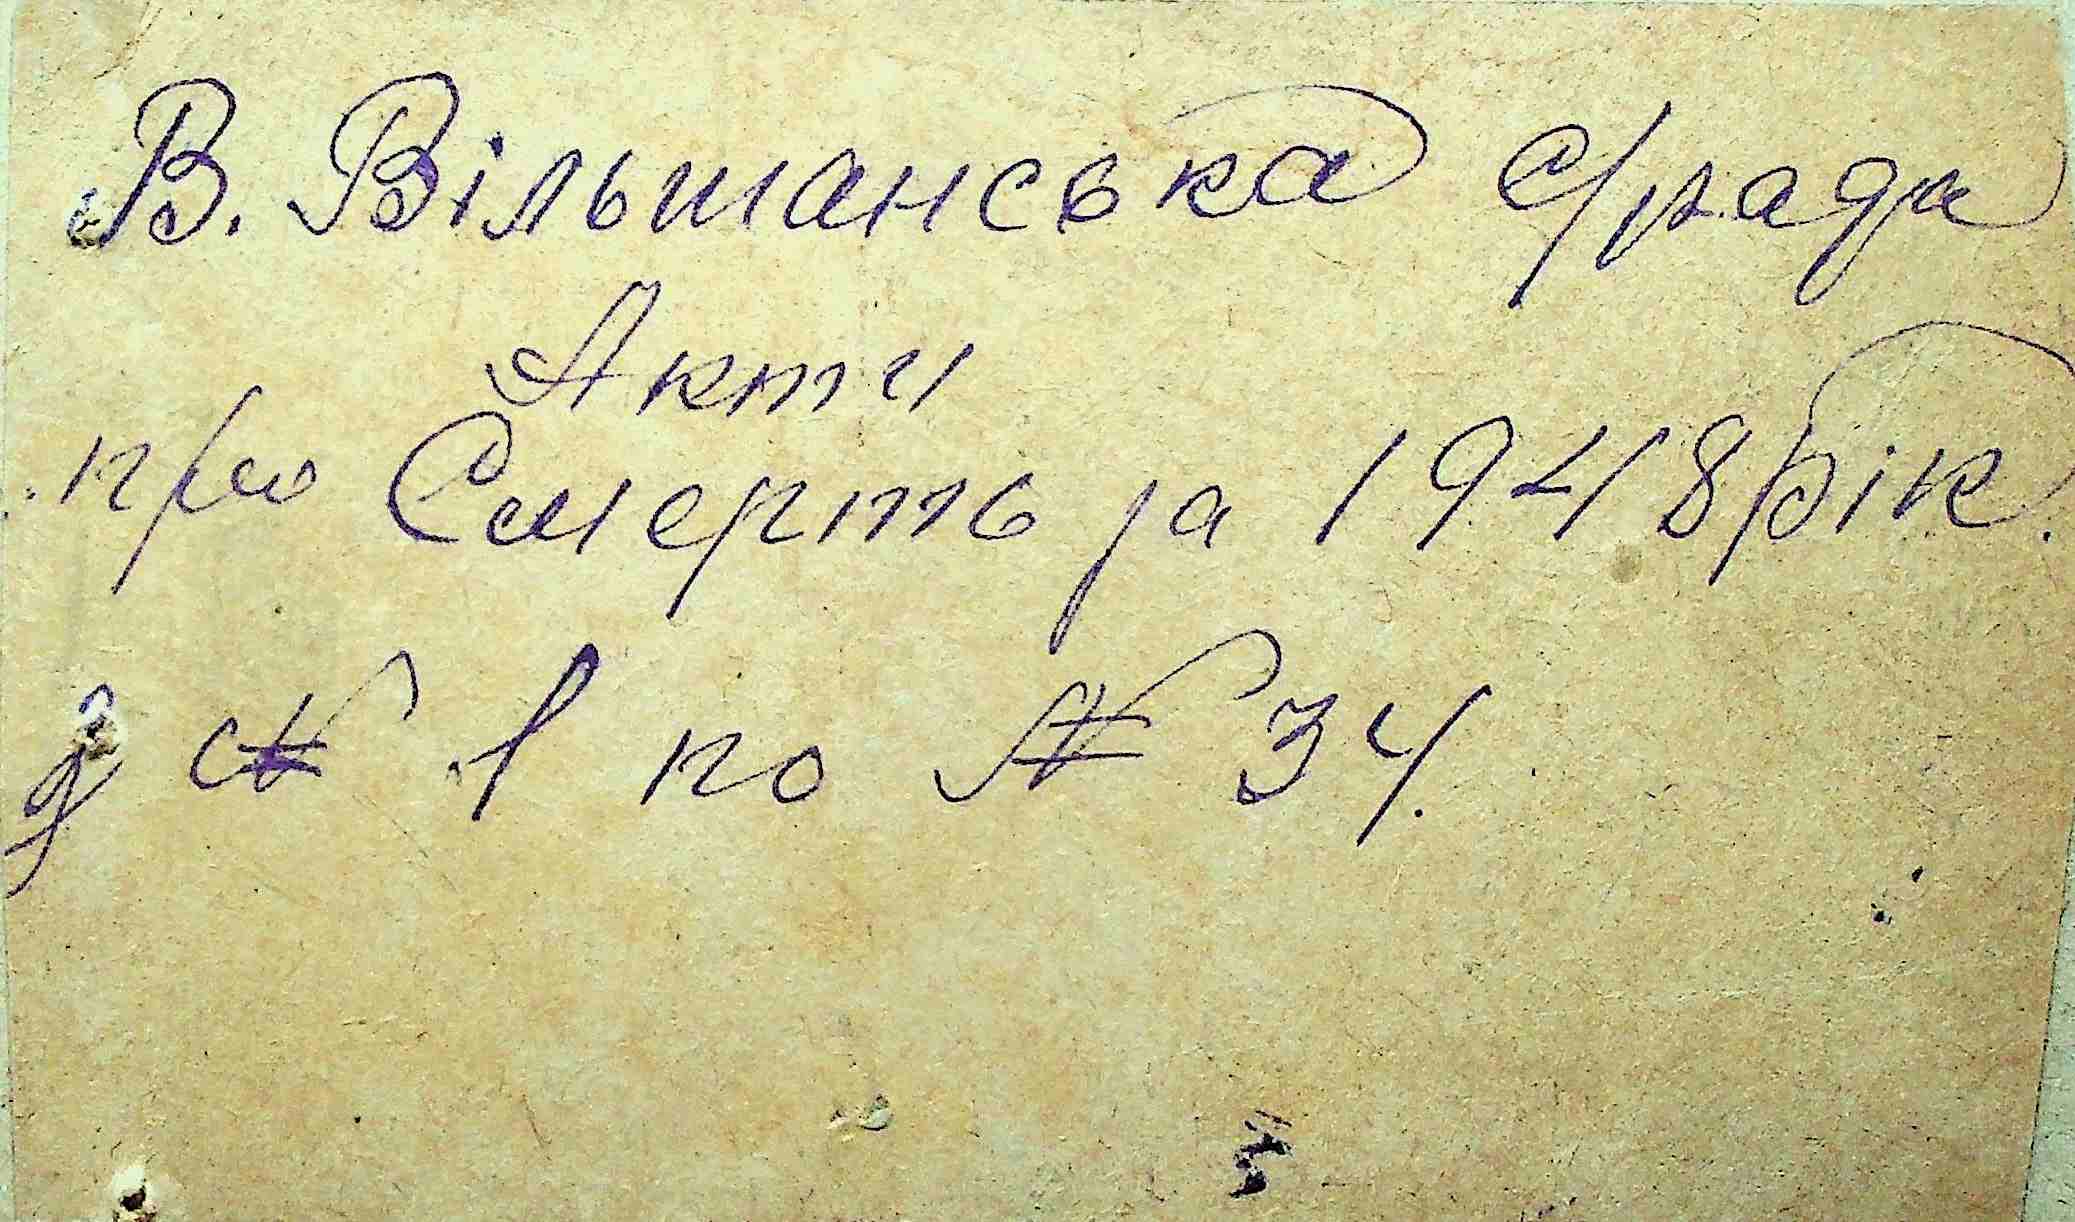 В. Вільшанська с/рада
Акти
про Смерть за 1948 рік.
з № 1 по № 34.